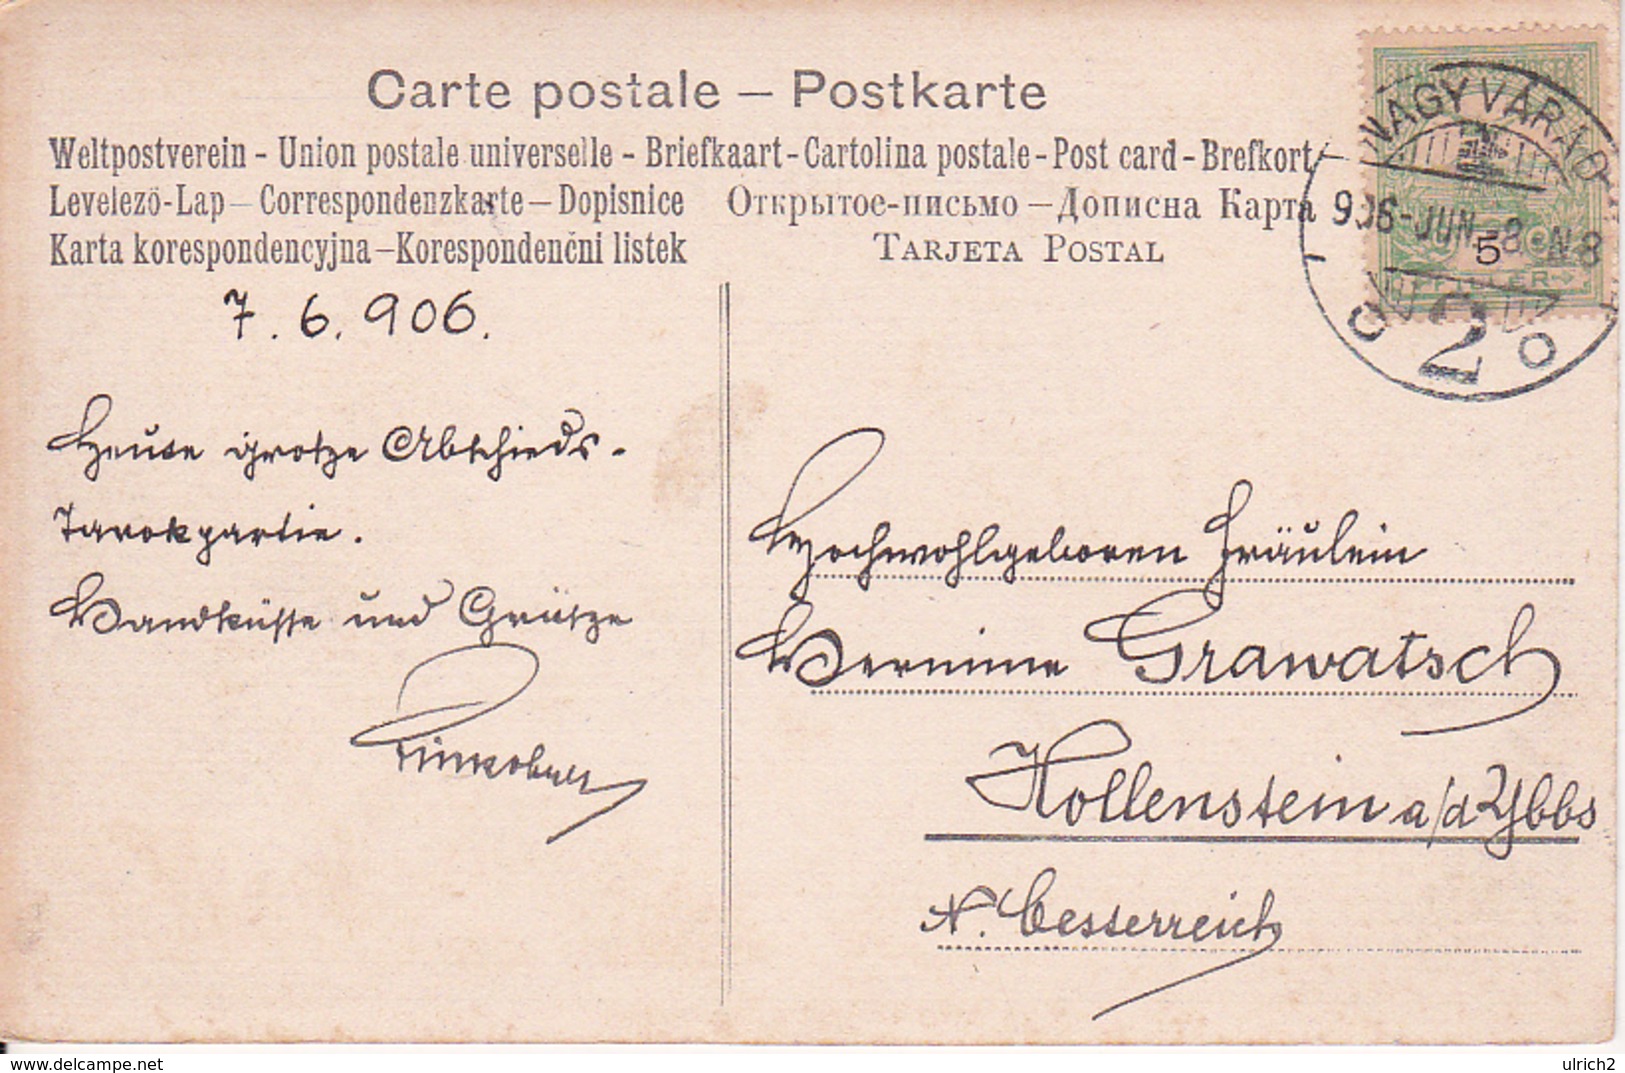 Carte postale – Postkarte
Weltpostverein - Union postale universelle - Briefkaart - Cartolina postale - Post card - Brefkort
Levelezö-Lap – Correspondenzkarte – Dopisnice Открытое-письмо – Дописна Карта
Karta korespondencyjna – Korespondenčni listek TARJETA POSTAL
NAGYVÁRAD
906-JUN.-8. N8
2
5
FILLÉR
7. 6. 906.
Heute grosze Abschieds-
Tarokpartie.
Handküsse und Grüsze
Hochwohlgeboren Fräulein
Hermine Grawatsch
Hollenstein a/d Ybbs
N. Oesterreich
www.delcampe.net
ulrich2